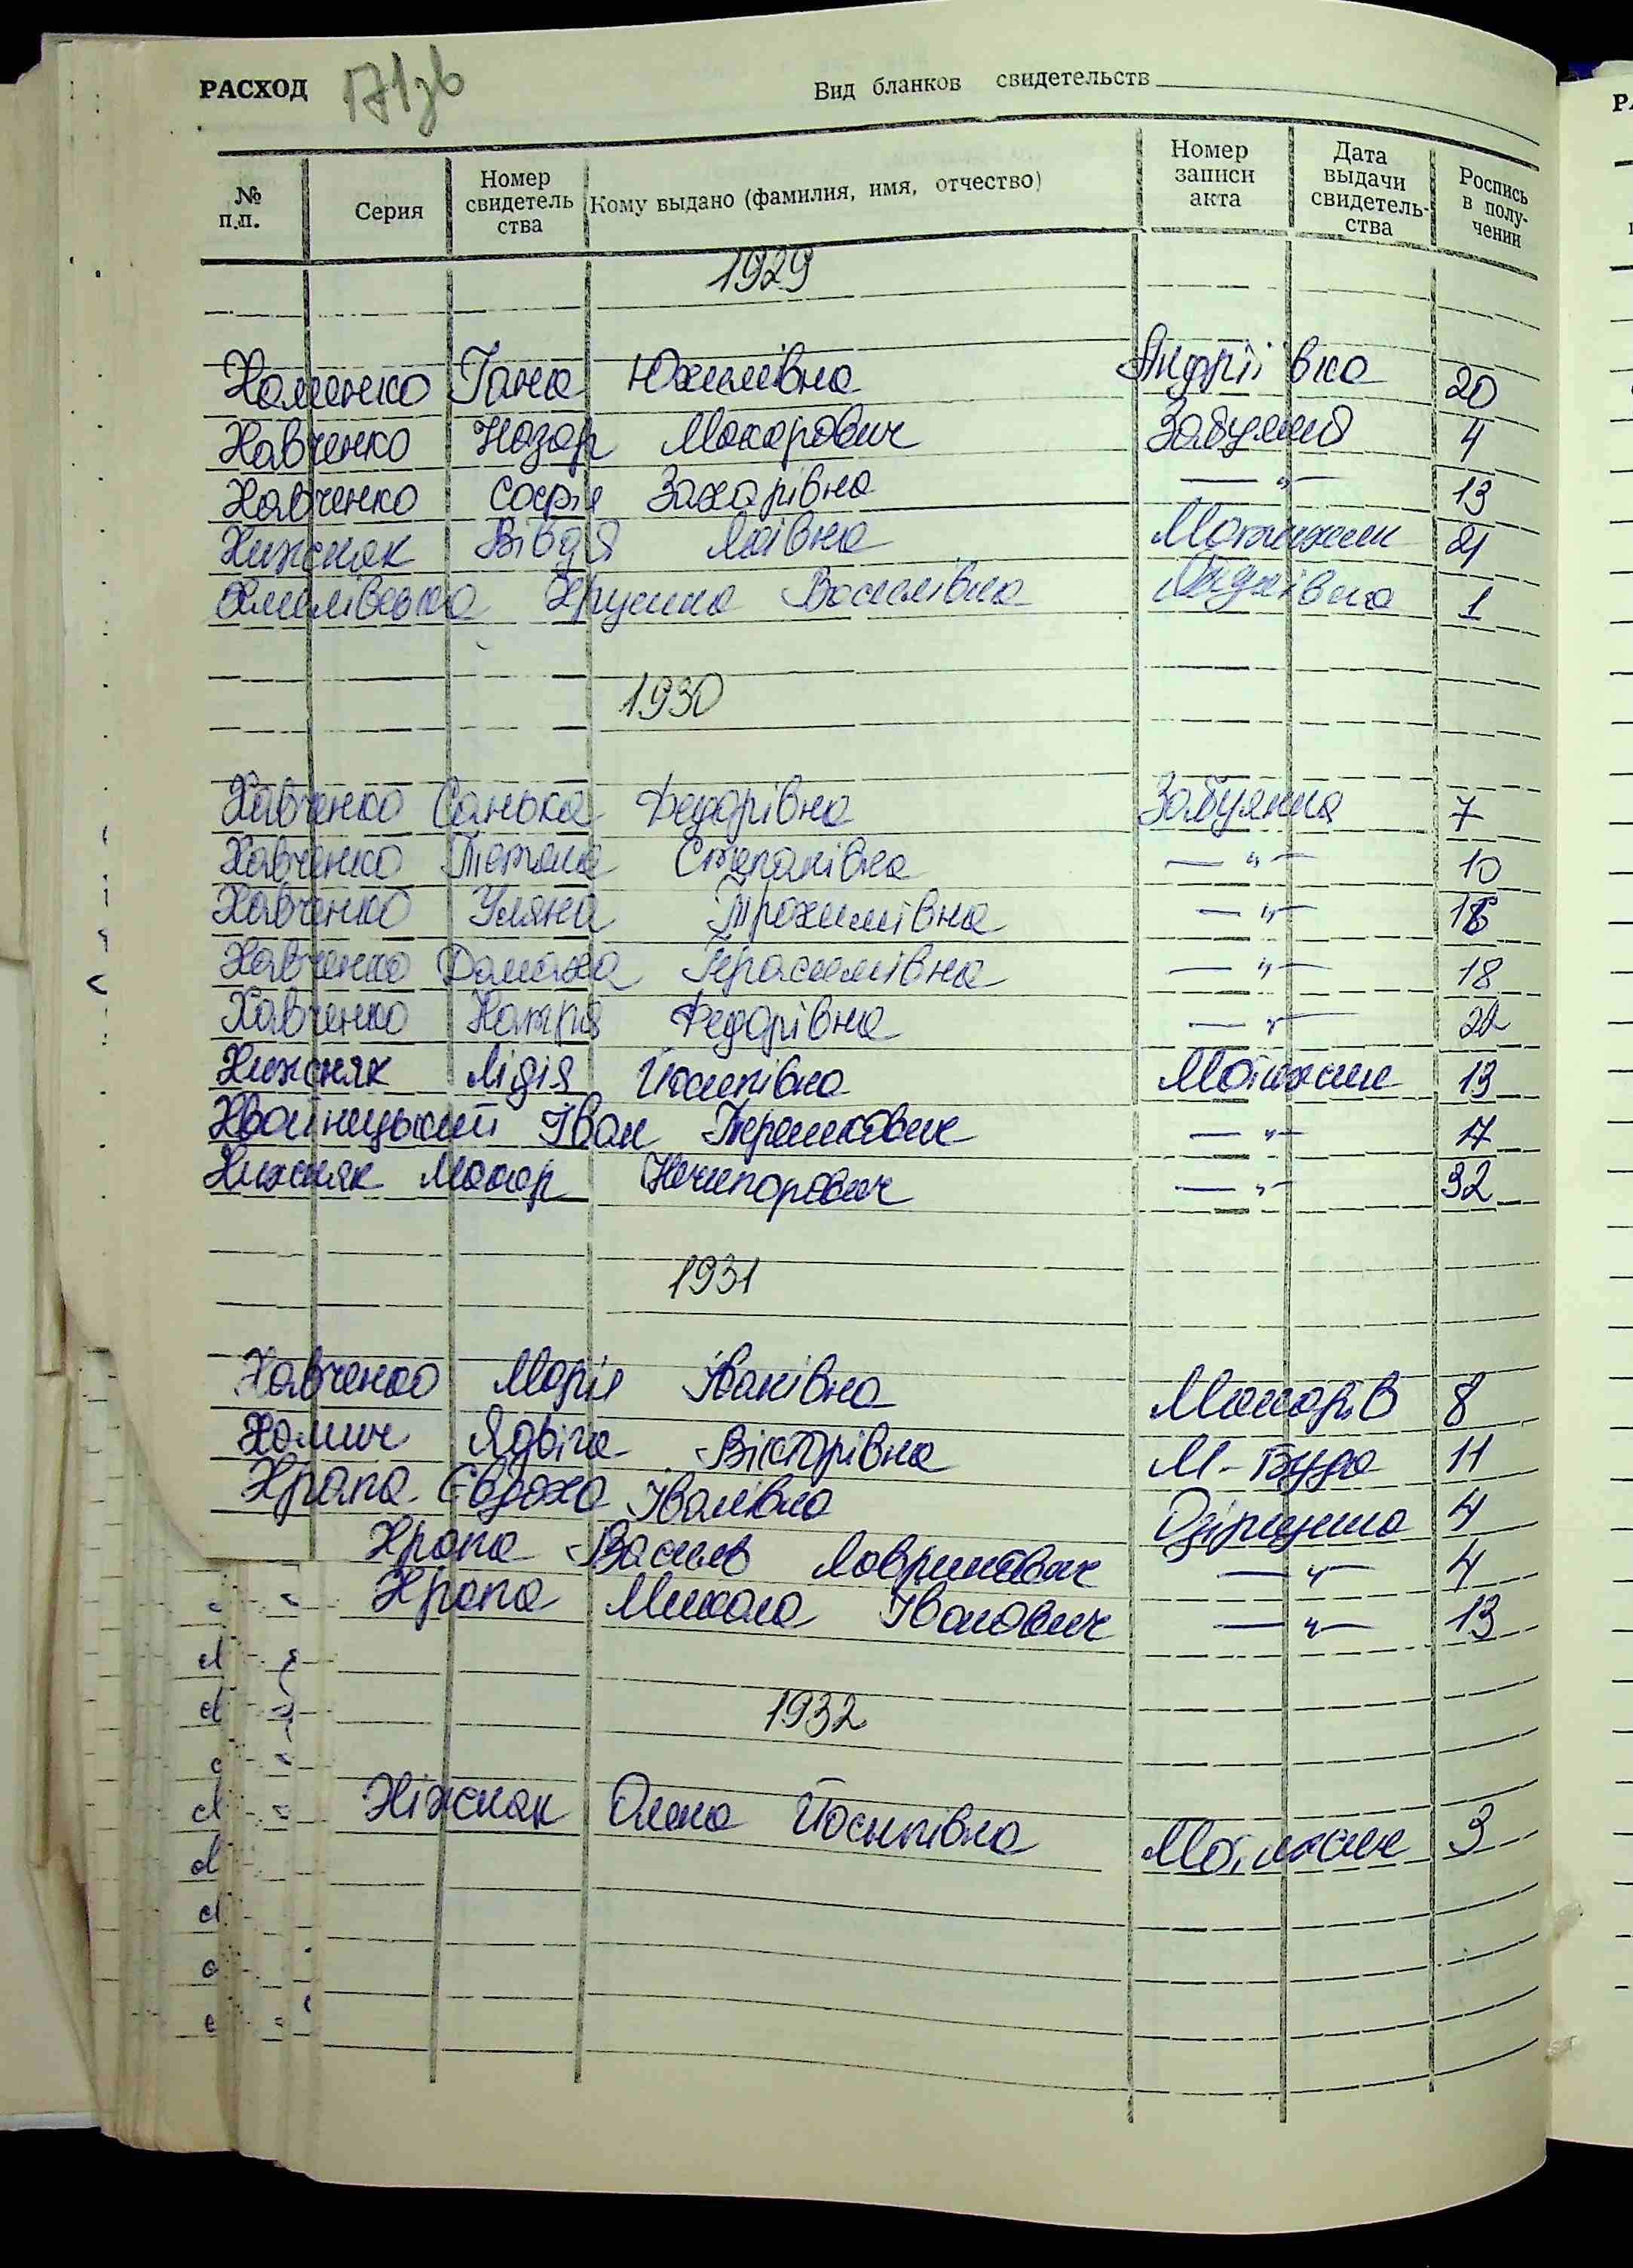 РАСХОД 171зв Вид бланков свидетельств
№ п.п. Серия Номер свидетель ства Кому выдано (фамилия, имя, отчество) Номер записи акта Дата выдачи свидетель- ства Роспись в полу- чении
1929
Хоменко Ганна Юхимівна Андріївка 20
Хавченко Назар Макарович Забуяння 4
Хавченко Софія Захарівна — „ — 13
Хижняк Вівдя Мотижин 21
Хринина Василівна Андріївка 1
1930
Хавченко Санька Федорівна Забуяння 7
Хавченко Тетяна Степанівна — „ — 10
Хавченко Уляна Трохимівна — „ —
Хавченко Домаха Герасимівна — „ — 18
Хавченко Натрія Федорівна — „ — 22
Хижняк Лідія Йосипівна Мотижин 13
Хвойницький Іван Терешкович — „ — 17
Хижняк Макар Ничипорович — „ — 32
1931
Хавченко Марія Іванівна Макарів 8
Хомич Ядвіга Вікторівна М-Буда 11
Храпа Євдоха Іванівна 4
Храпа Василь Лавринович — „ — 4
Храпа Микола Іванович — „ — 13
1932
Хіжняк Олена Йосипівна Мотижин 3